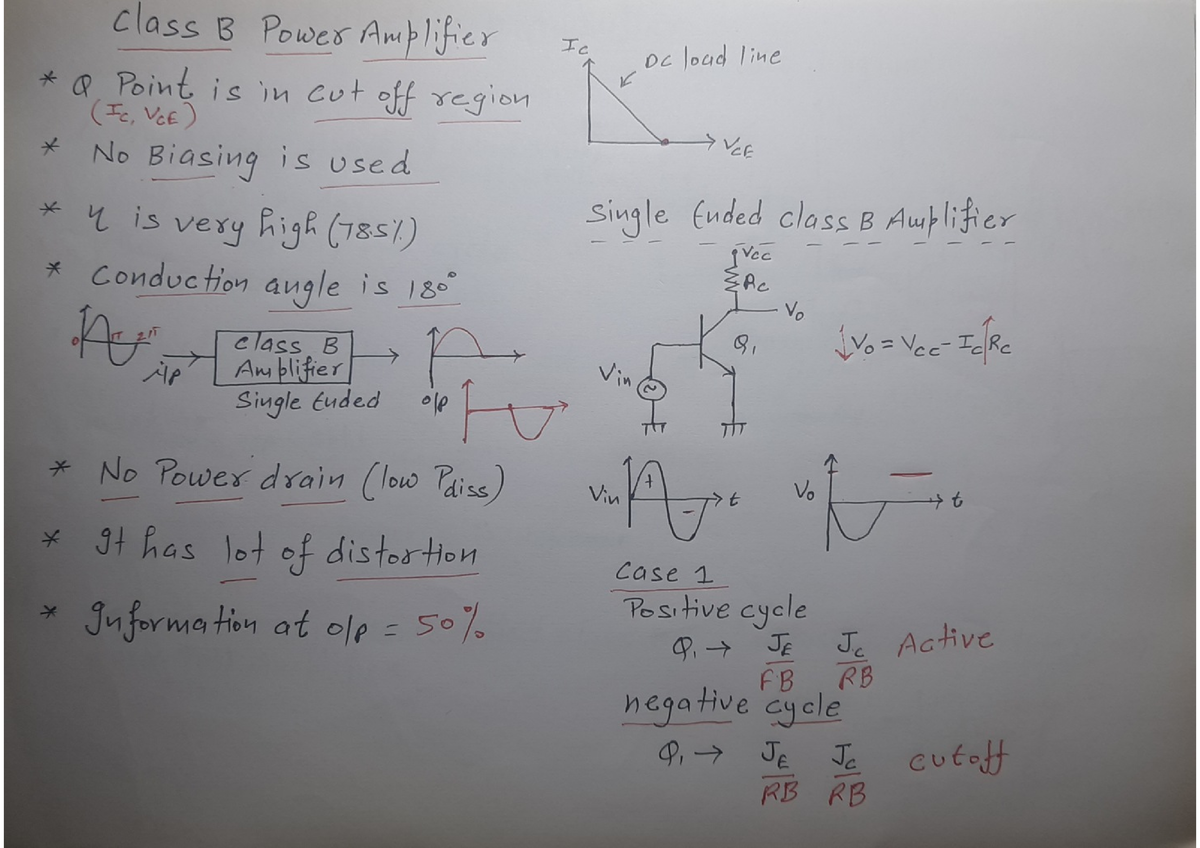 Class B Power Amplifier
* Q Point is in cut off region
(Ic, VCE)
* No Biasing is used
* η is very high (78.5%)
* Conduction angle is 180°
0 π 2π
i/p
Class B
Amplifier
Single Ended
o/p
* No Power drain (low Pdiss)
* It has lot of distortion
* Information at o/p = 50%
Ic
DC load line
VCE
Single Ended Class B Amplifier
Vcc
Rc
Vo
Q1
Vin
↓Vo = Vcc - Ic↑Rc
Vin + - t
Vo t
Case 1
Positive cycle
Q1 → JE Jc Active
FB RB
negative cycle
Q1 → JE Jc cutoff
RB RB